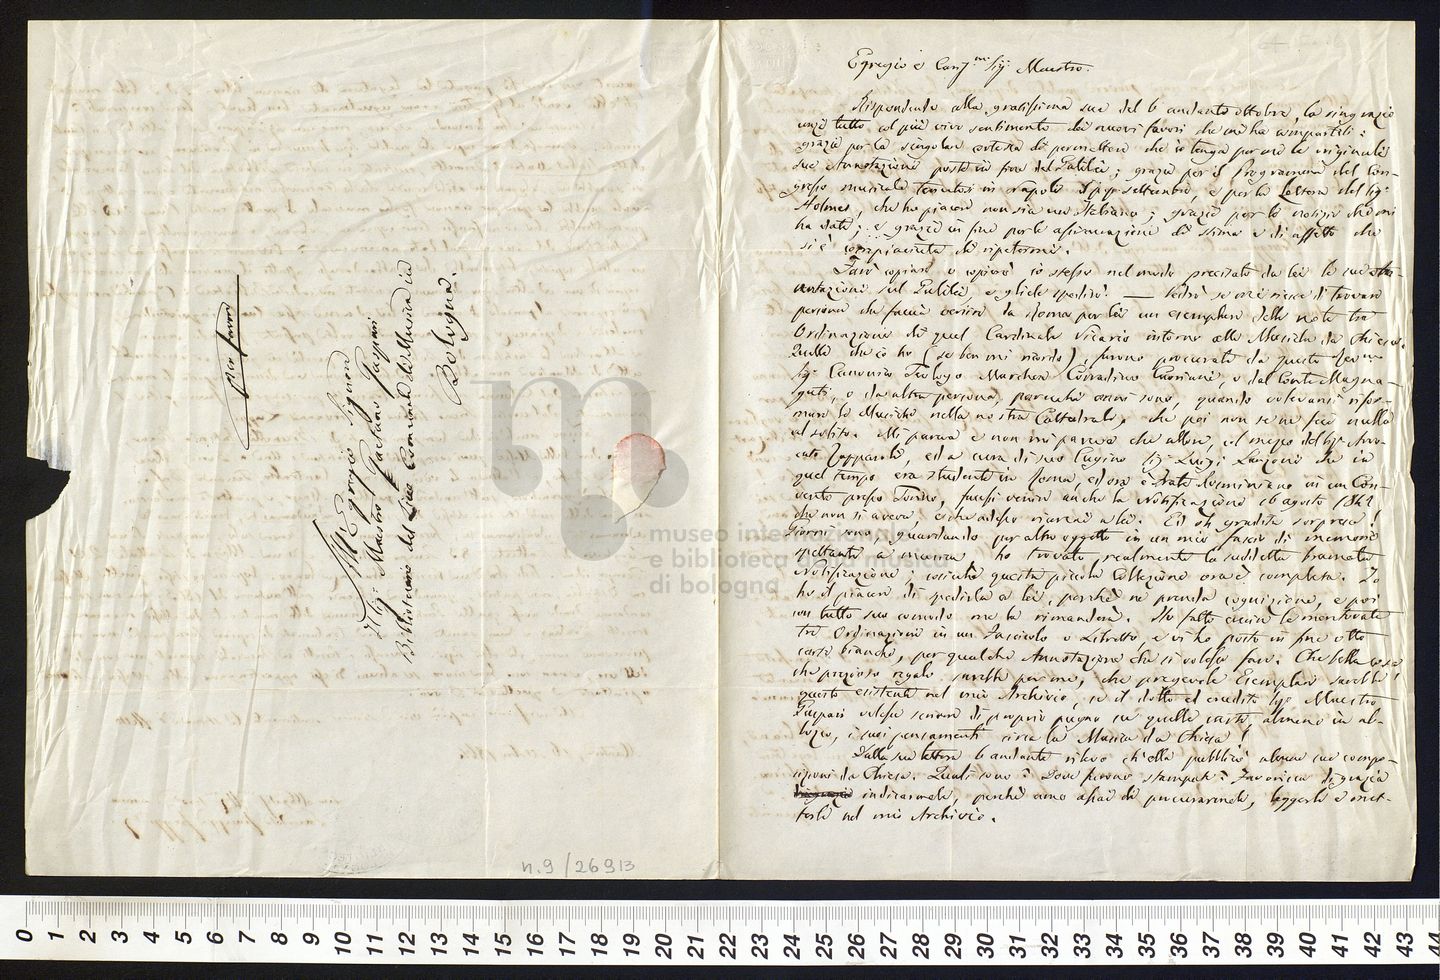 per favore
All'Egregio Signore
Il Sig.r Maestro Gaetano Gaspari
Bibliotecario del Liceo Comunale di Musica in
Bologna.
n. 9 / 26913
Egregio e Cariss.mo Sig. Maestro.
Rispondendo alla gratissima sua del 6 andante ottobre, la ringrazio
anzi tutto col più vivo sentimento dei nuovi favori che mi ha compartiti:
grazie per la singolar cortesia di permettere che io tenga per me le originali
sue Annotazioni poste in fine del Galilei; grazie per il Programma del Con-
gresso musicale tenutosi in Napoli il pp. settembre, e per la Lettera del sig.
Holmes, che ho piacere non sia un Italiano; grazie per le notizie che mi
ha date; e grazie in fine per le assicurazioni di stima e di affetto che
si è compiaciuta di ripetermi.
Farò copiare o copierò io stesso nel modo precitato da lei le sue An-
notazioni sul Galilei, e gliele spedirò. — Vedrò se mi riesce di trovare
persona che faccia venire da Roma per lei un esemplare delle note tre
Ordinazioni di quel Cardinale Vicario intorno alla Musica da Chiesa.
Quelle che io ho (se ben mi ricordo), furono procurate da questo
Sig. Canonico Teologo Marchese Corradino Cavriani, o dal Conte Magna-
guti, o da altra persona, parecchi anni sono, quando volevansi rifor-
mare le Musiche nella nostra Cattedrale, che poi non se ne fece nulla
al solito. Mi pareva e non mi pareva che allora, col mezzo del Sig. Avvo-
cato Zapparoli, ed a cura di suo Cugino Sig. Luigi Lanzoni che in
quel tempo era studente in Roma, ed ora è Frate Rosminiano in un Con-
vento presso Torino, facessi venire anche la Notificazione 16 agosto 1842
che non si aveva, e che adesso ricercai a lei. Ed oh gradita sorpresa!
Giorni sono, guardando per altro oggetto in un mio fascio di memorie
spettanti a musica ho trovato realmente la suddetta bramata
Notificazione; cosicché questa piccola Collezione ora è completa. Io
ho il piacere di spedirla a lei, perché ne prenda cognizione, e poi
con tutto suo comodo me la rimanderà. Ho fatto cucire le mentovate
tre Ordinazioni in un Fascicolo o Libretto, e vi ho posto in fine otto
carte bianche, per qualche Annotazione che si volesse fare. Che bella cosa
che prezioso regalo sarebbe per me, che pregevole Esemplare sarebbe
questo esistente nel mio Archivio, se il dotto ed erudito Sig. Maestro
Gaspari volesse scrivere di proprio pugno su quelle carte, almeno in ab-
bozzo, i suoi pensamenti circa la Musica da Chiesa!
Dalla sua lettera 6 andante rilevo ch'ella pubblicò alcune sue compo-
sizioni da Chiesa. Quali sono? Dove furono stampate? Favorisca di grazia
indicarmele, perché amo assai di procurarmele, leggerle e met-
terle nel mio Archivio.
museo internazionale
e biblioteca della musica
di bologna
0 1 2 3 4 5 6 7 8 9 10 11 12 13 14 15 16 17 18 19 20 21 22 23 24 25 26 27 28 29 30 31 32 33 34 35 36 37 38 39 40 41 42 43 44